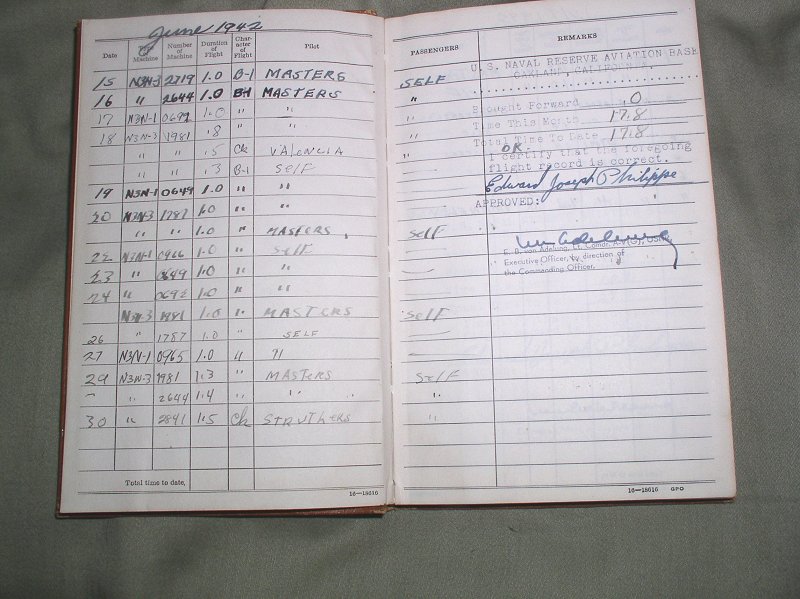 June 1942
Date Type of Machine Number of Machine Duration of Flight Character of Flight Pilot
15 N3N-3 2719 1.0 B-1 MASTERS
16 " 2644 1.0 B-1 MASTERS
17 N3N-1 0692 1.0 " "
18 N3N-3 1981 .8 " "
" " .5 Ck VALENCIA
" " .3 B-1 SELF
19 N3N-1 0649 1.0 " "
20 N3N-3 1787 1.0 " "
" " 1.0 " MASTERS
22 N3N-1 0966 1.0 " SELF
23 " 0649 1.0 " "
24 " 0692 1.0 " "
N3N-3 1981 1.0 " MASTERS
26 " 1787 1.0 SELF
27 N3N-1 0965 1.0 " "
29 N3N-3 1981 1.3 " MASTERS
" " 2644 1.4 " "
30 " 2841 1.5 Ck STRUTHERS
Total time to date,
16—18616
PASSENGERS REMARKS
U.S. NAVAL RESERVE AVIATION BASE
SELF OAKLAND, CALIFORNIA
"
" Brought Forward .0
Time This Month 17.8
" Total Time To Date 17.8
OR
" I certify that the foregoing
flight record is correct.
Edward Joseph Philippe
APPROVED:
SELF
E. B. von Adelung, Lt. Comdr. A-V(G), USNR,
Executive Officer, by direction of
the Commanding Officer.
SELF
SELF
"
"
16—18616 GPO